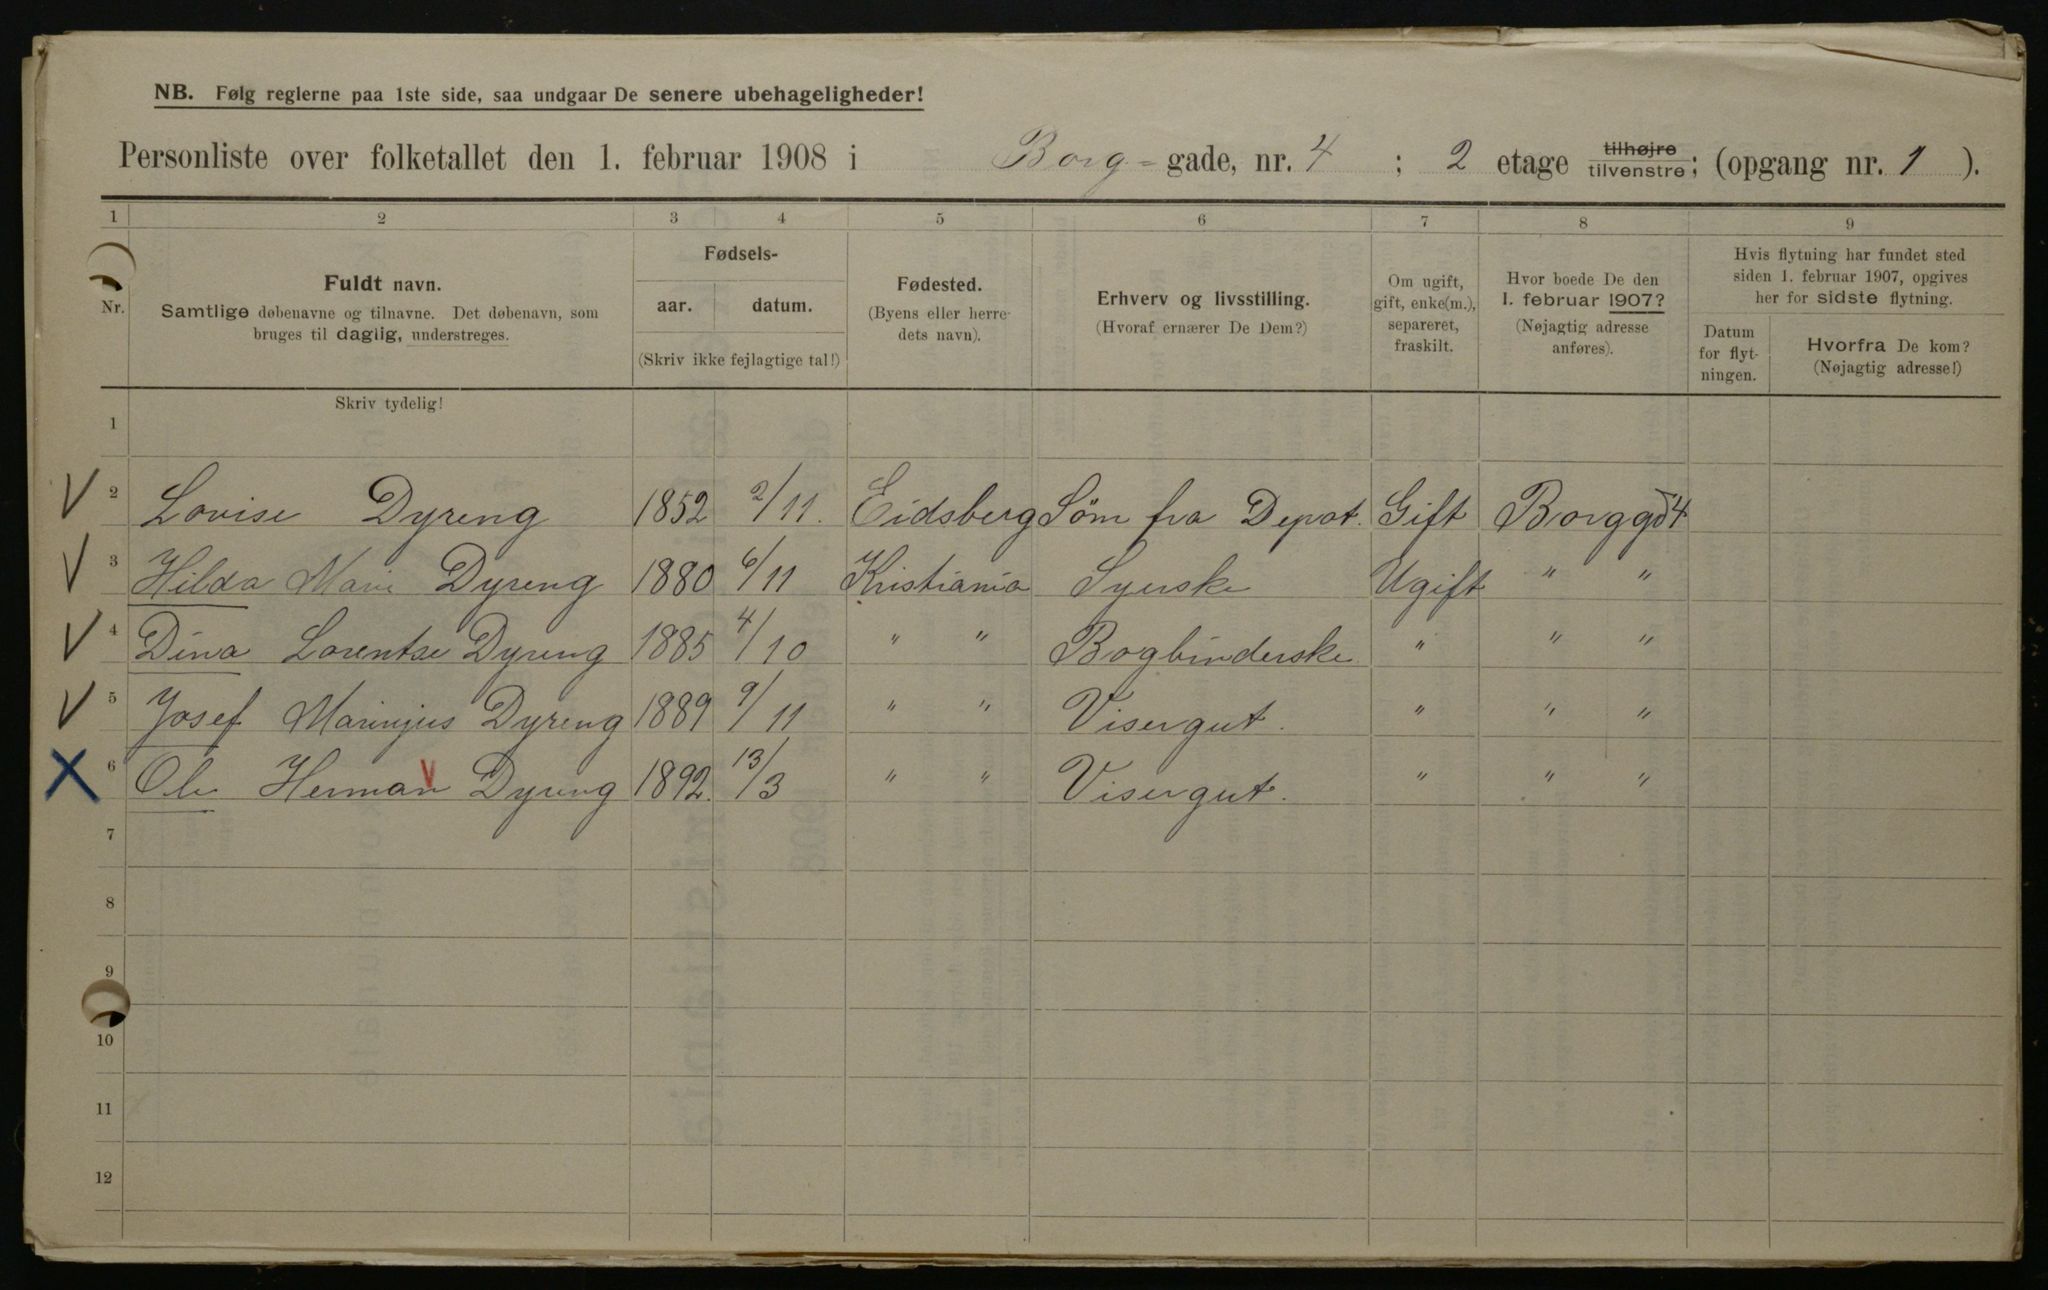 NB. Følg reglerne paa 1ste side, saa undgaar De senere ubehageligheder!
Personliste over folketallet den 1. februar 1908 i Borg-gade, nr. 4 ; 2 etage tilhøjre tilvenstre; (opgang nr. 1 ).
1 2 3 4 5 6 7 8 9
Nr.
Fuldt navn.
Samtlige døbenavne og tilnavne. Det døbenavn, som
bruges til daglig, understreges.
Fødsels-
aar. datum.
(Skriv ikke fejlagtige tal!)
Fødested.
(Byens eller herre-
dets navn).
Erhverv og livsstilling.
(Hvoraf ernærer De Dem?)
Om ugift,
gift, enke(m.),
separeret,
fraskilt.
Hvor boede De den
1. februar 1907?
(Nøjagtig adresse
anføres).
Hvis flytning har fundet sted
siden 1. februar 1907, opgives
her for sidste flytning.
Datum
for flyt-
ningen.
Hvorfra De kom?
(Nøjagtig adresse!)
Skriv tydelig!
1
V 2 Lovise Dyreng 1852 2/11. Eidsberg Søm fra Depot. Gift Borggd 4
V 3 Hilda Marie Dyreng 1880 6/11 Kristiania Syerske Ugift " "
V 4 Dina Lorentse Dyreng 1885 4/10 " " Bogbinderske " " "
V 5 Josef Marinjus Dyreng 1889 9/11 " " Visergut. " " "
X 6 Ole Herman V Dyreng 1892. 13/3 " " Visergut. " " "
7
8
9
10
11
12